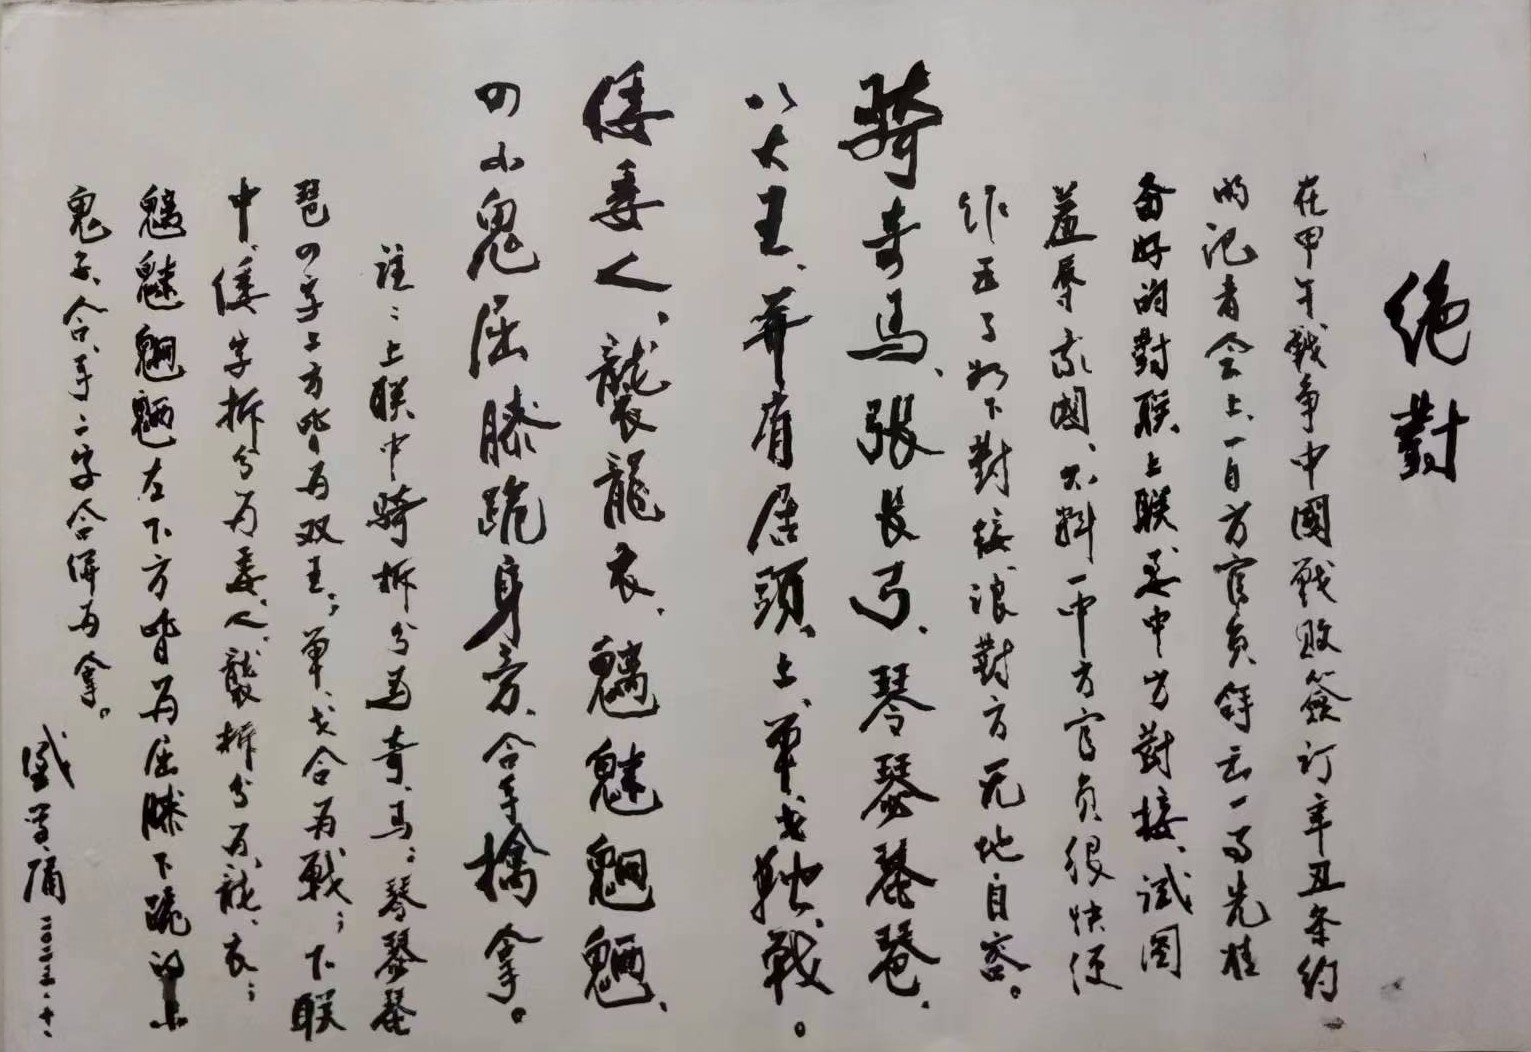 绝對
在甲午戰争中國戰敗簽订辛丑条约
的记者会上、一日方官员傲云一事先准
备好的對联上联要中方對接、试图
羞辱我國、不料一中方官员很快便
作出了如下對接、浪對方无地自容。
騎奇馬、張長弓、琴瑟琵琶、
八大王、并肩居頭、上、單戈独戰。
倭委人、襲龍衣、魑魅魍魎、
四小鬼屈膝跪身旁、合手擒拿。
註：上联中騎拆分為奇、馬；琴瑟琵
琶四字上方皆为双王；單、戈合为戰；下联
中、倭字拆分为委、人、襲拆分为龍、衣；
魑魅魍魎左下方皆为屈膝下跪的小
鬼子、合、手二字合併为拿。